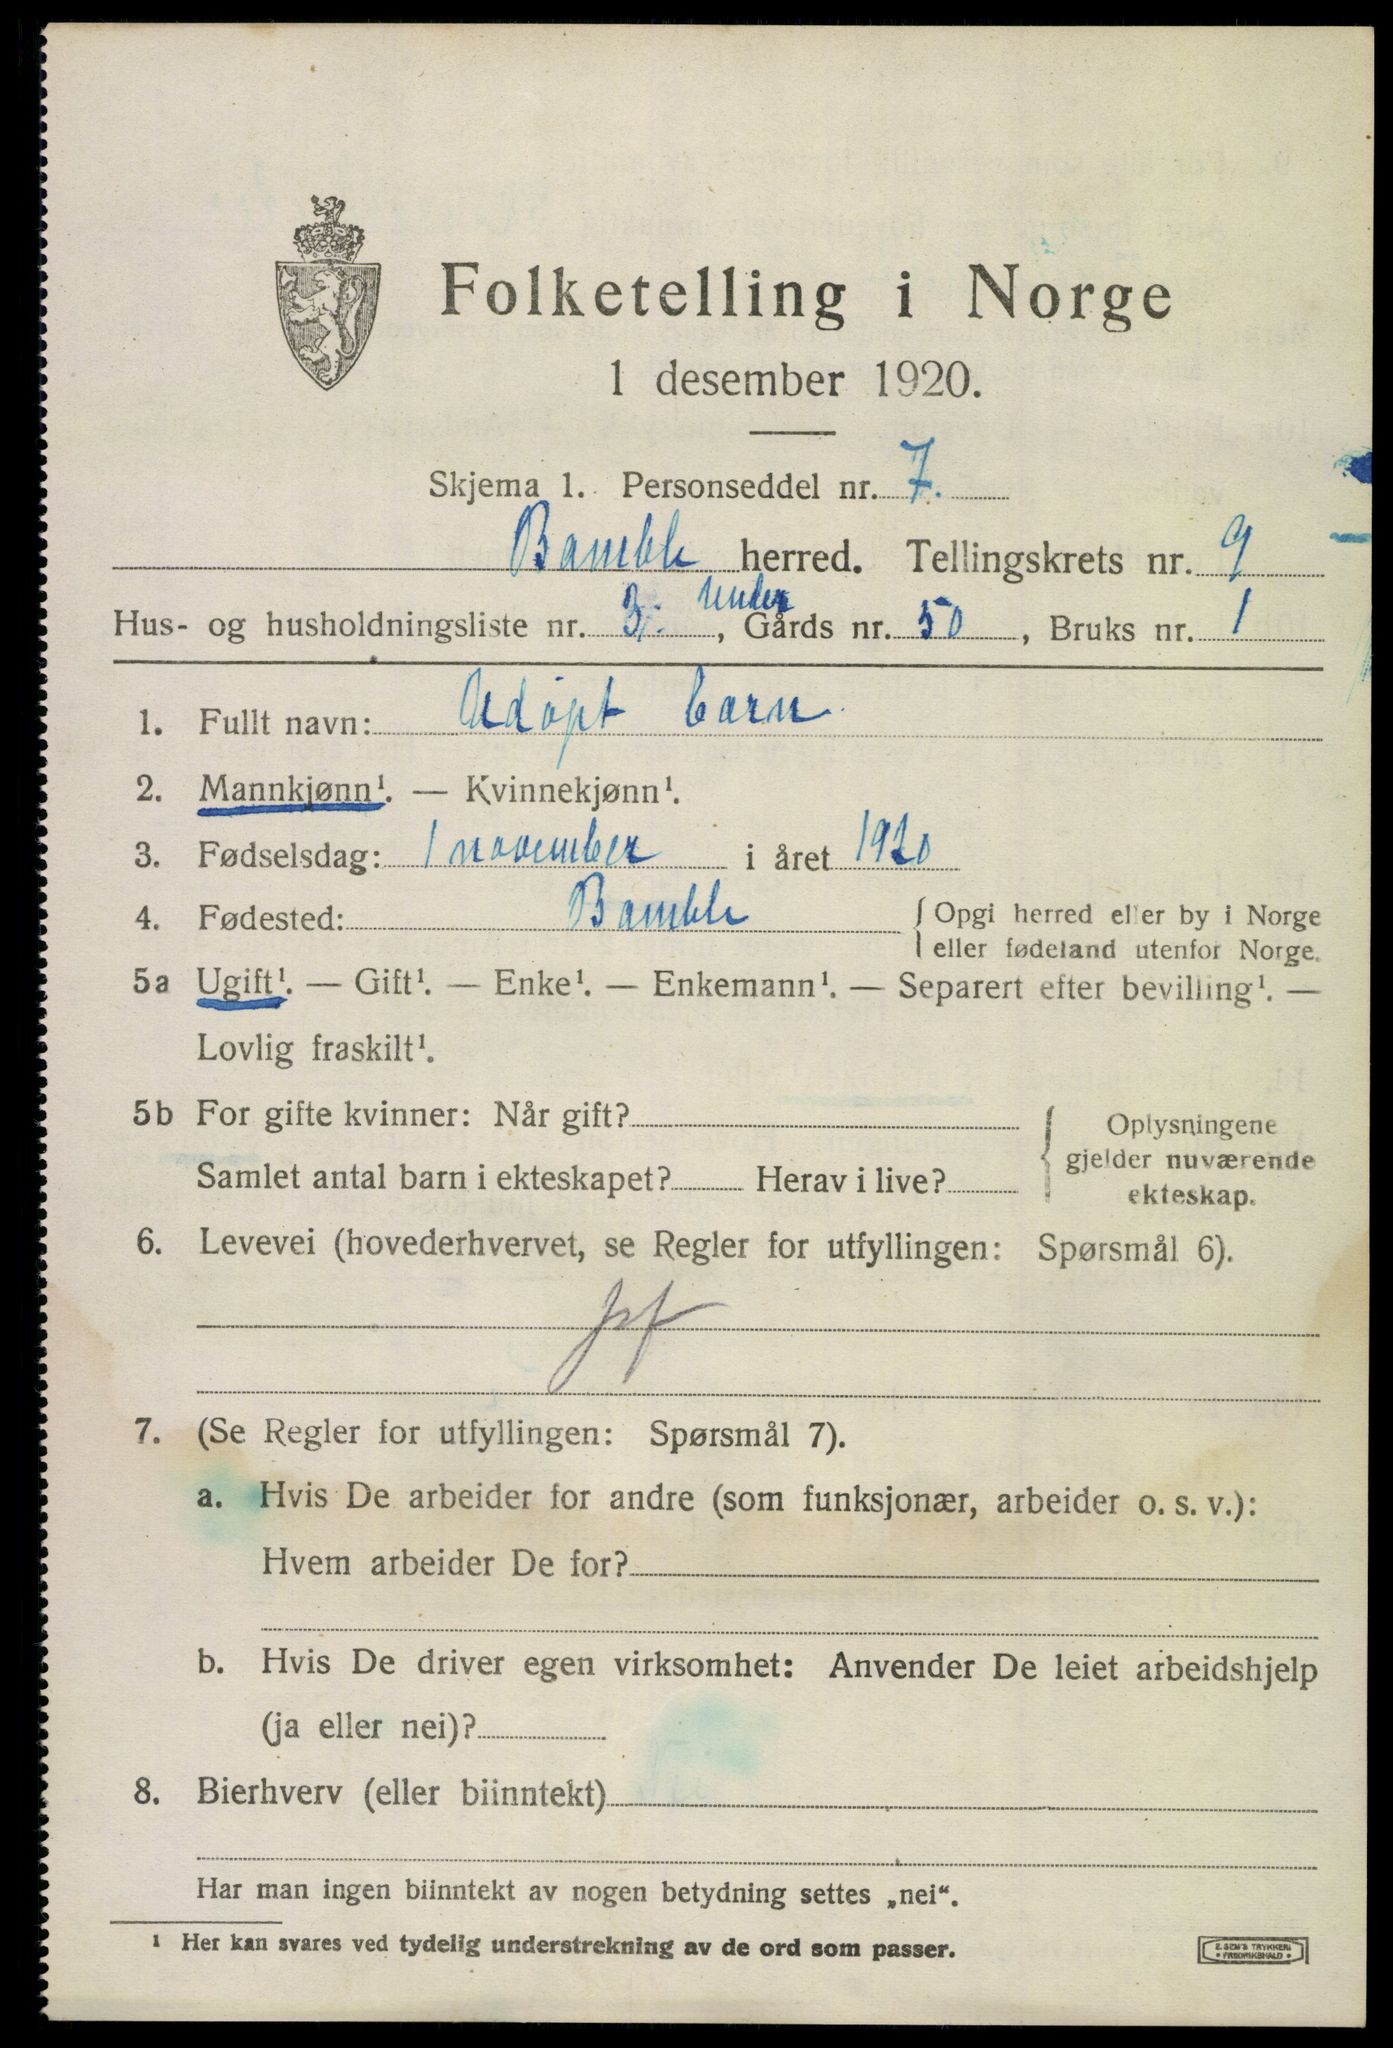 Folketelling i Norge
1 desember 1920.
Skjema 1. Personseddel nr. 7.
Bamble herred. Tellingskrets nr. 9
Hus- og husholdningsliste nr. 3. under, Gårds nr. 50, Bruks nr. 1
1. Fullt navn: Udøpt barn
2. Mannkjønn¹. — Kvinnekjønn¹.
3. Fødselsdag: 1 november i året 1920
4. Fødested: Bamble { Opgi herred eller by i Norge
eller fødeland utenfor Norge.
5a Ugift¹. — Gift¹. — Enke¹. — Enkemann¹. — Separert efter bevilling¹. —
Lovlig fraskilt¹.
5b For gifte kvinner: Når gift?
Samlet antal barn i ekteskapet? Herav i live?
{ Oplysningene
gjelder nuværende
ekteskap.
6. Levevei (hovederhvervet, se Regler for utfyllingen: Spørsmål 6).
7. (Se Regler for utfyllingen: Spørsmål 7).
a. Hvis De arbeider for andre (som funksjonær, arbeider o. s. v.):
Hvem arbeider De for?
b. Hvis De driver egen virksomhet: Anvender De leiet arbeidshjelp
(ja eller nei)?
8. Bierhverv (eller biinntekt)
Har man ingen biinntekt av nogen betydning settes „nei“.
¹ Her kan svares ved tydelig understrekning av de ord som passer.
E. SEM'S TRYKKERI
• FREDRIKSHALD •